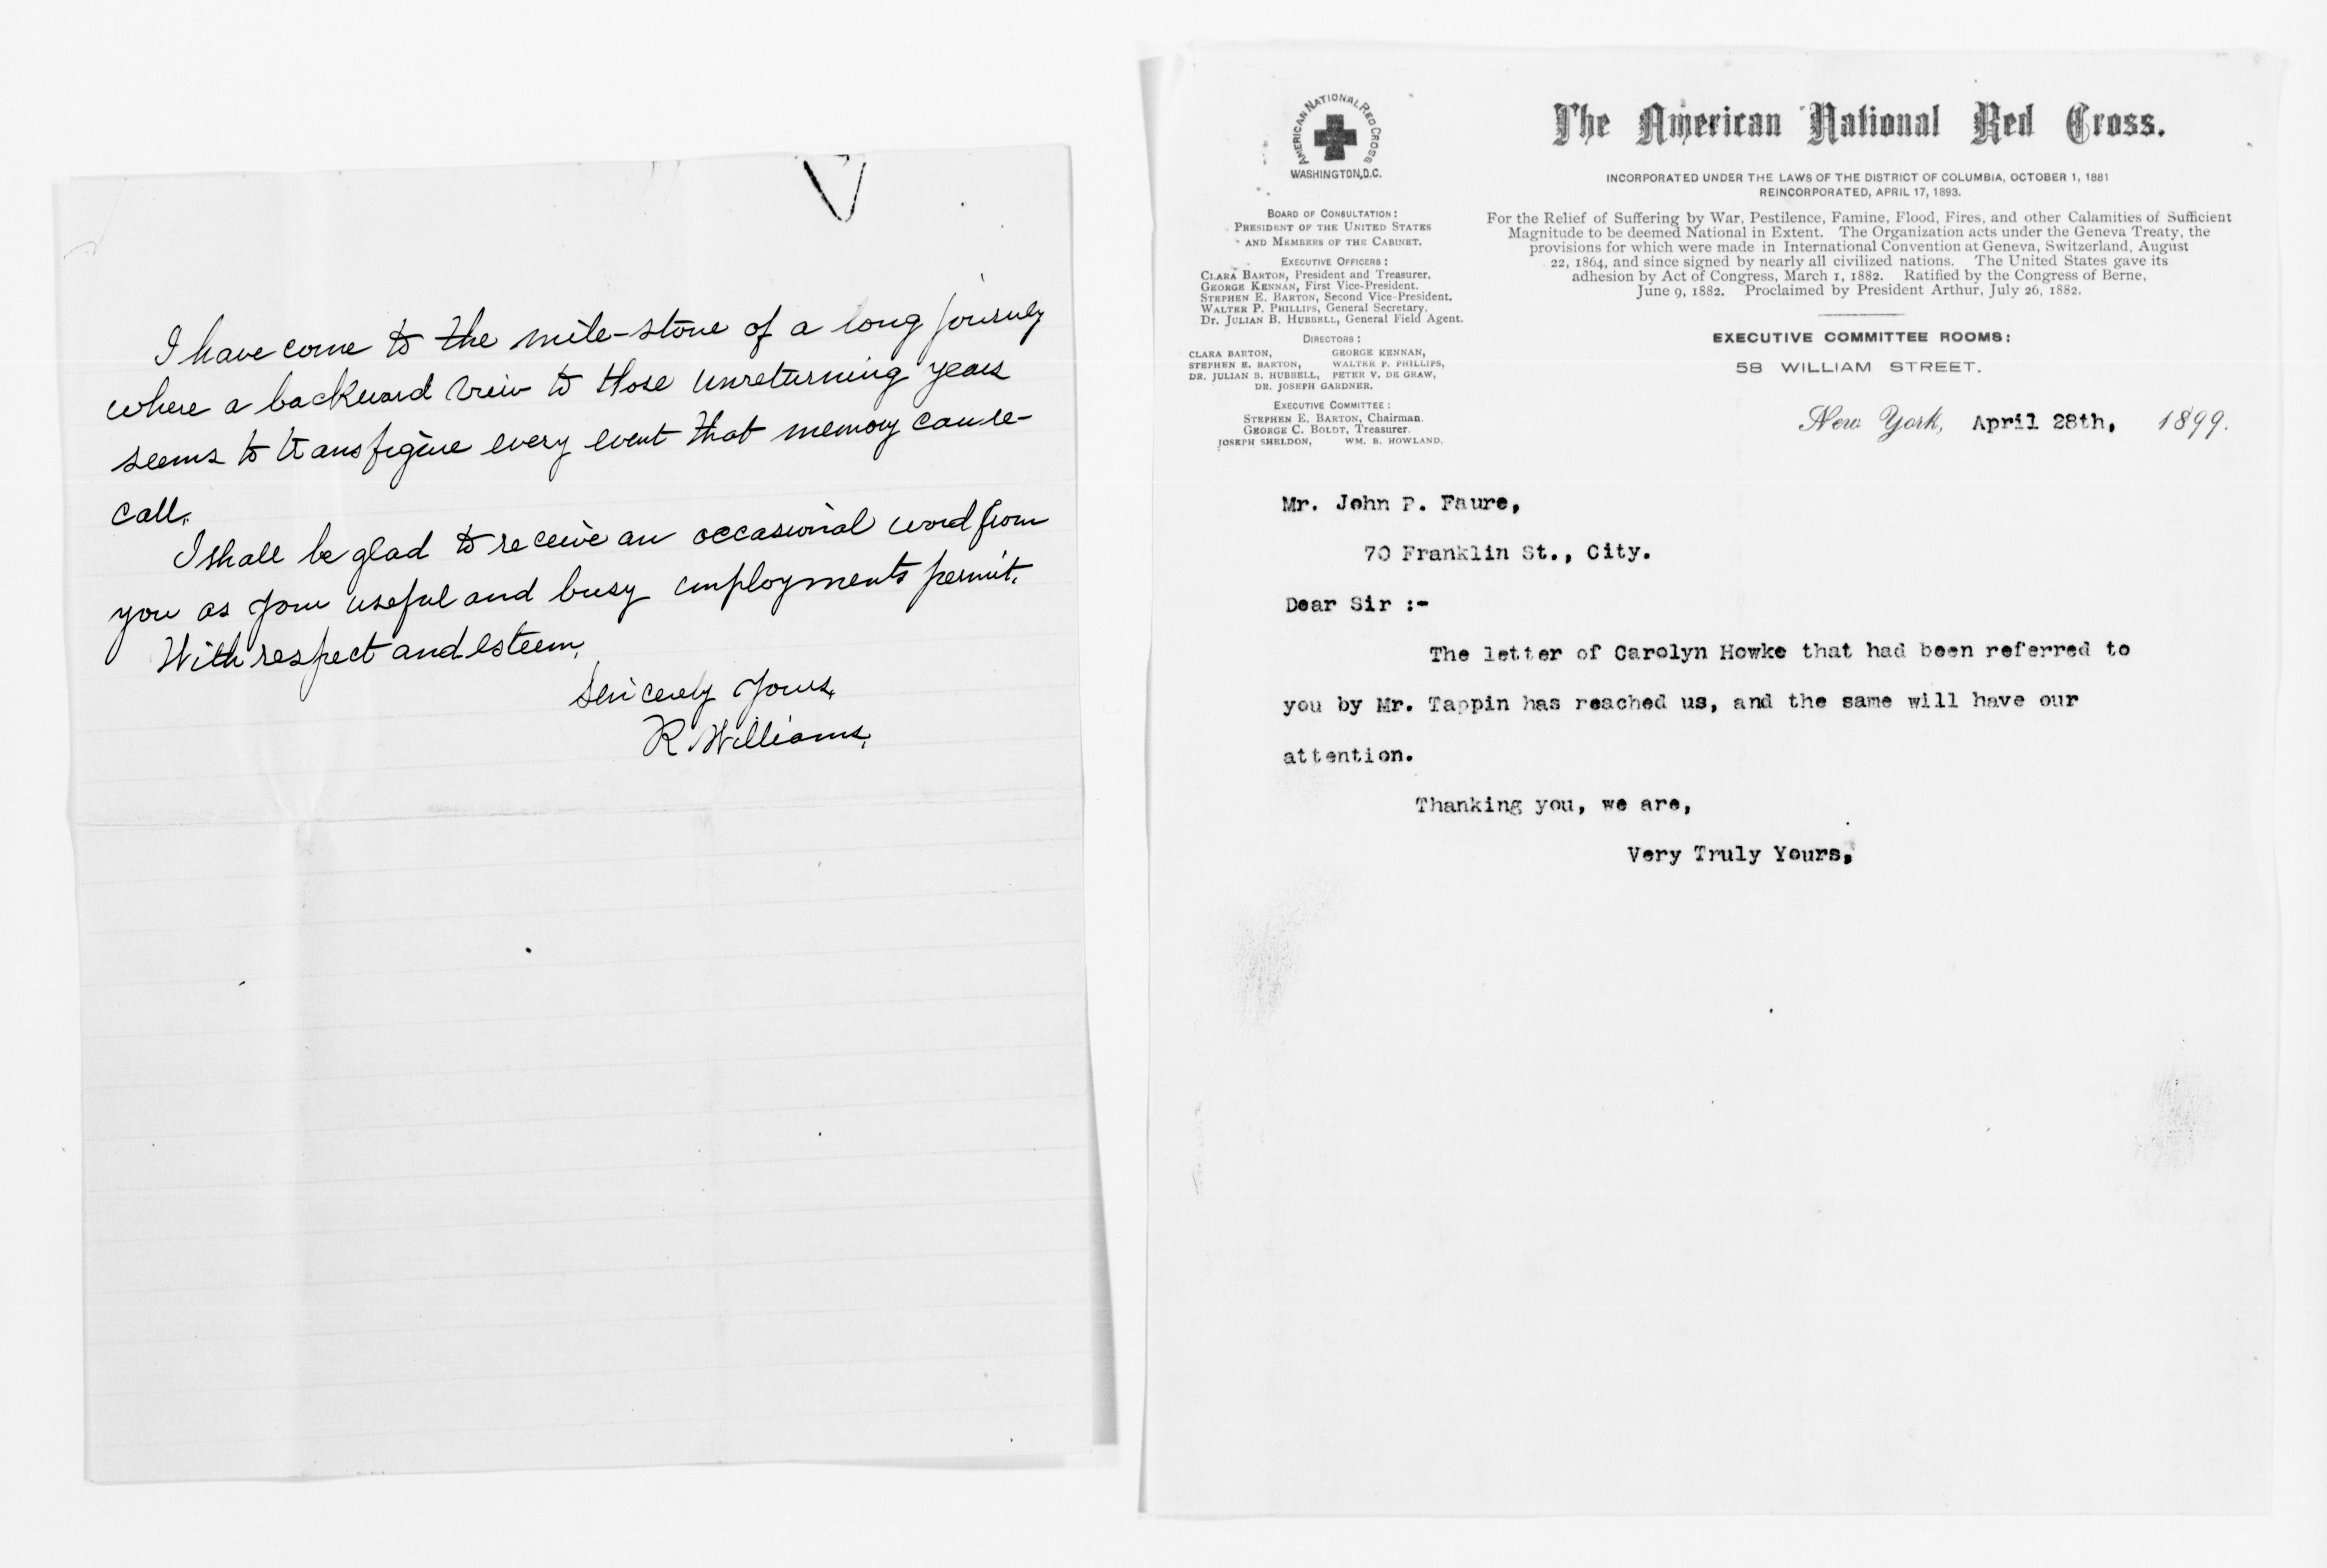 I have come to the mile-stone of a long journey
where a backward view to those unreturning years
seems to transfigure every event that memory can re-
call.
I shall be glad to receive an occasional word from
you as your useful and busy employments permit.
With respect and esteem,
Sincerely Yours,
R. Williams.
AMERICAN NATIONAL RED CROSS
WASHINGTON, D.C.
BOARD OF CONSULTATION:
PRESIDENT OF THE UNITED STATES
AND MEMBERS OF THE CABINET.
EXECUTIVE OFFICERS:
CLARA BARTON, President and Treasurer.
GEORGE KENNAN, First Vice-President.
STEPHEN E. BARTON, Second Vice-President.
WALTER P. PHILLIPS, General Secretary.
Dr. JULIAN B. HUBBELL, General Field Agent.
DIRECTORS:
CLARA BARTON, GEORGE KENNAN,
STEPHEN E. BARTON, WALTER P. PHILLIPS,
DR. JULIAN B. HUBBELL, PETER V. DE GRAW,
DR. JOSEPH GARDNER.
EXECUTIVE COMMITTEE:
STEPHEN E. BARTON, Chairman.
GEORGE C. BOLDT, Treasurer.
JOSEPH SHELDON, WM. B. HOWLAND.
The American National Red Cross.
INCORPORATED UNDER THE LAWS OF THE DISTRICT OF COLUMBIA, OCTOBER 1, 1881
REINCORPORATED, APRIL 17, 1893.
For the Relief of Suffering by War, Pestilence, Famine, Flood, Fires, and other Calamities of Sufficient
Magnitude to be deemed National in Extent. The Organization acts under the Geneva Treaty, the
provisions for which were made in International Convention at Geneva, Switzerland, August
22, 1864, and since signed by nearly all civilized nations. The United States gave its
adhesion by Act of Congress, March 1, 1882. Ratified by the Congress of Berne,
June 9, 1882. Proclaimed by President Arthur, July 26, 1882.
EXECUTIVE COMMITTEE ROOMS:
58 WILLIAM STREET.
New York, April 28th, 1899.
Mr. John P. Faure,
70 Franklin St., City.
Dear Sir :-
The letter of Carolyn Howke that had been referred to
you by Mr. Tappin has reached us, and the same will have our
attention.
Thanking you, we are,
Very Truly Yours,